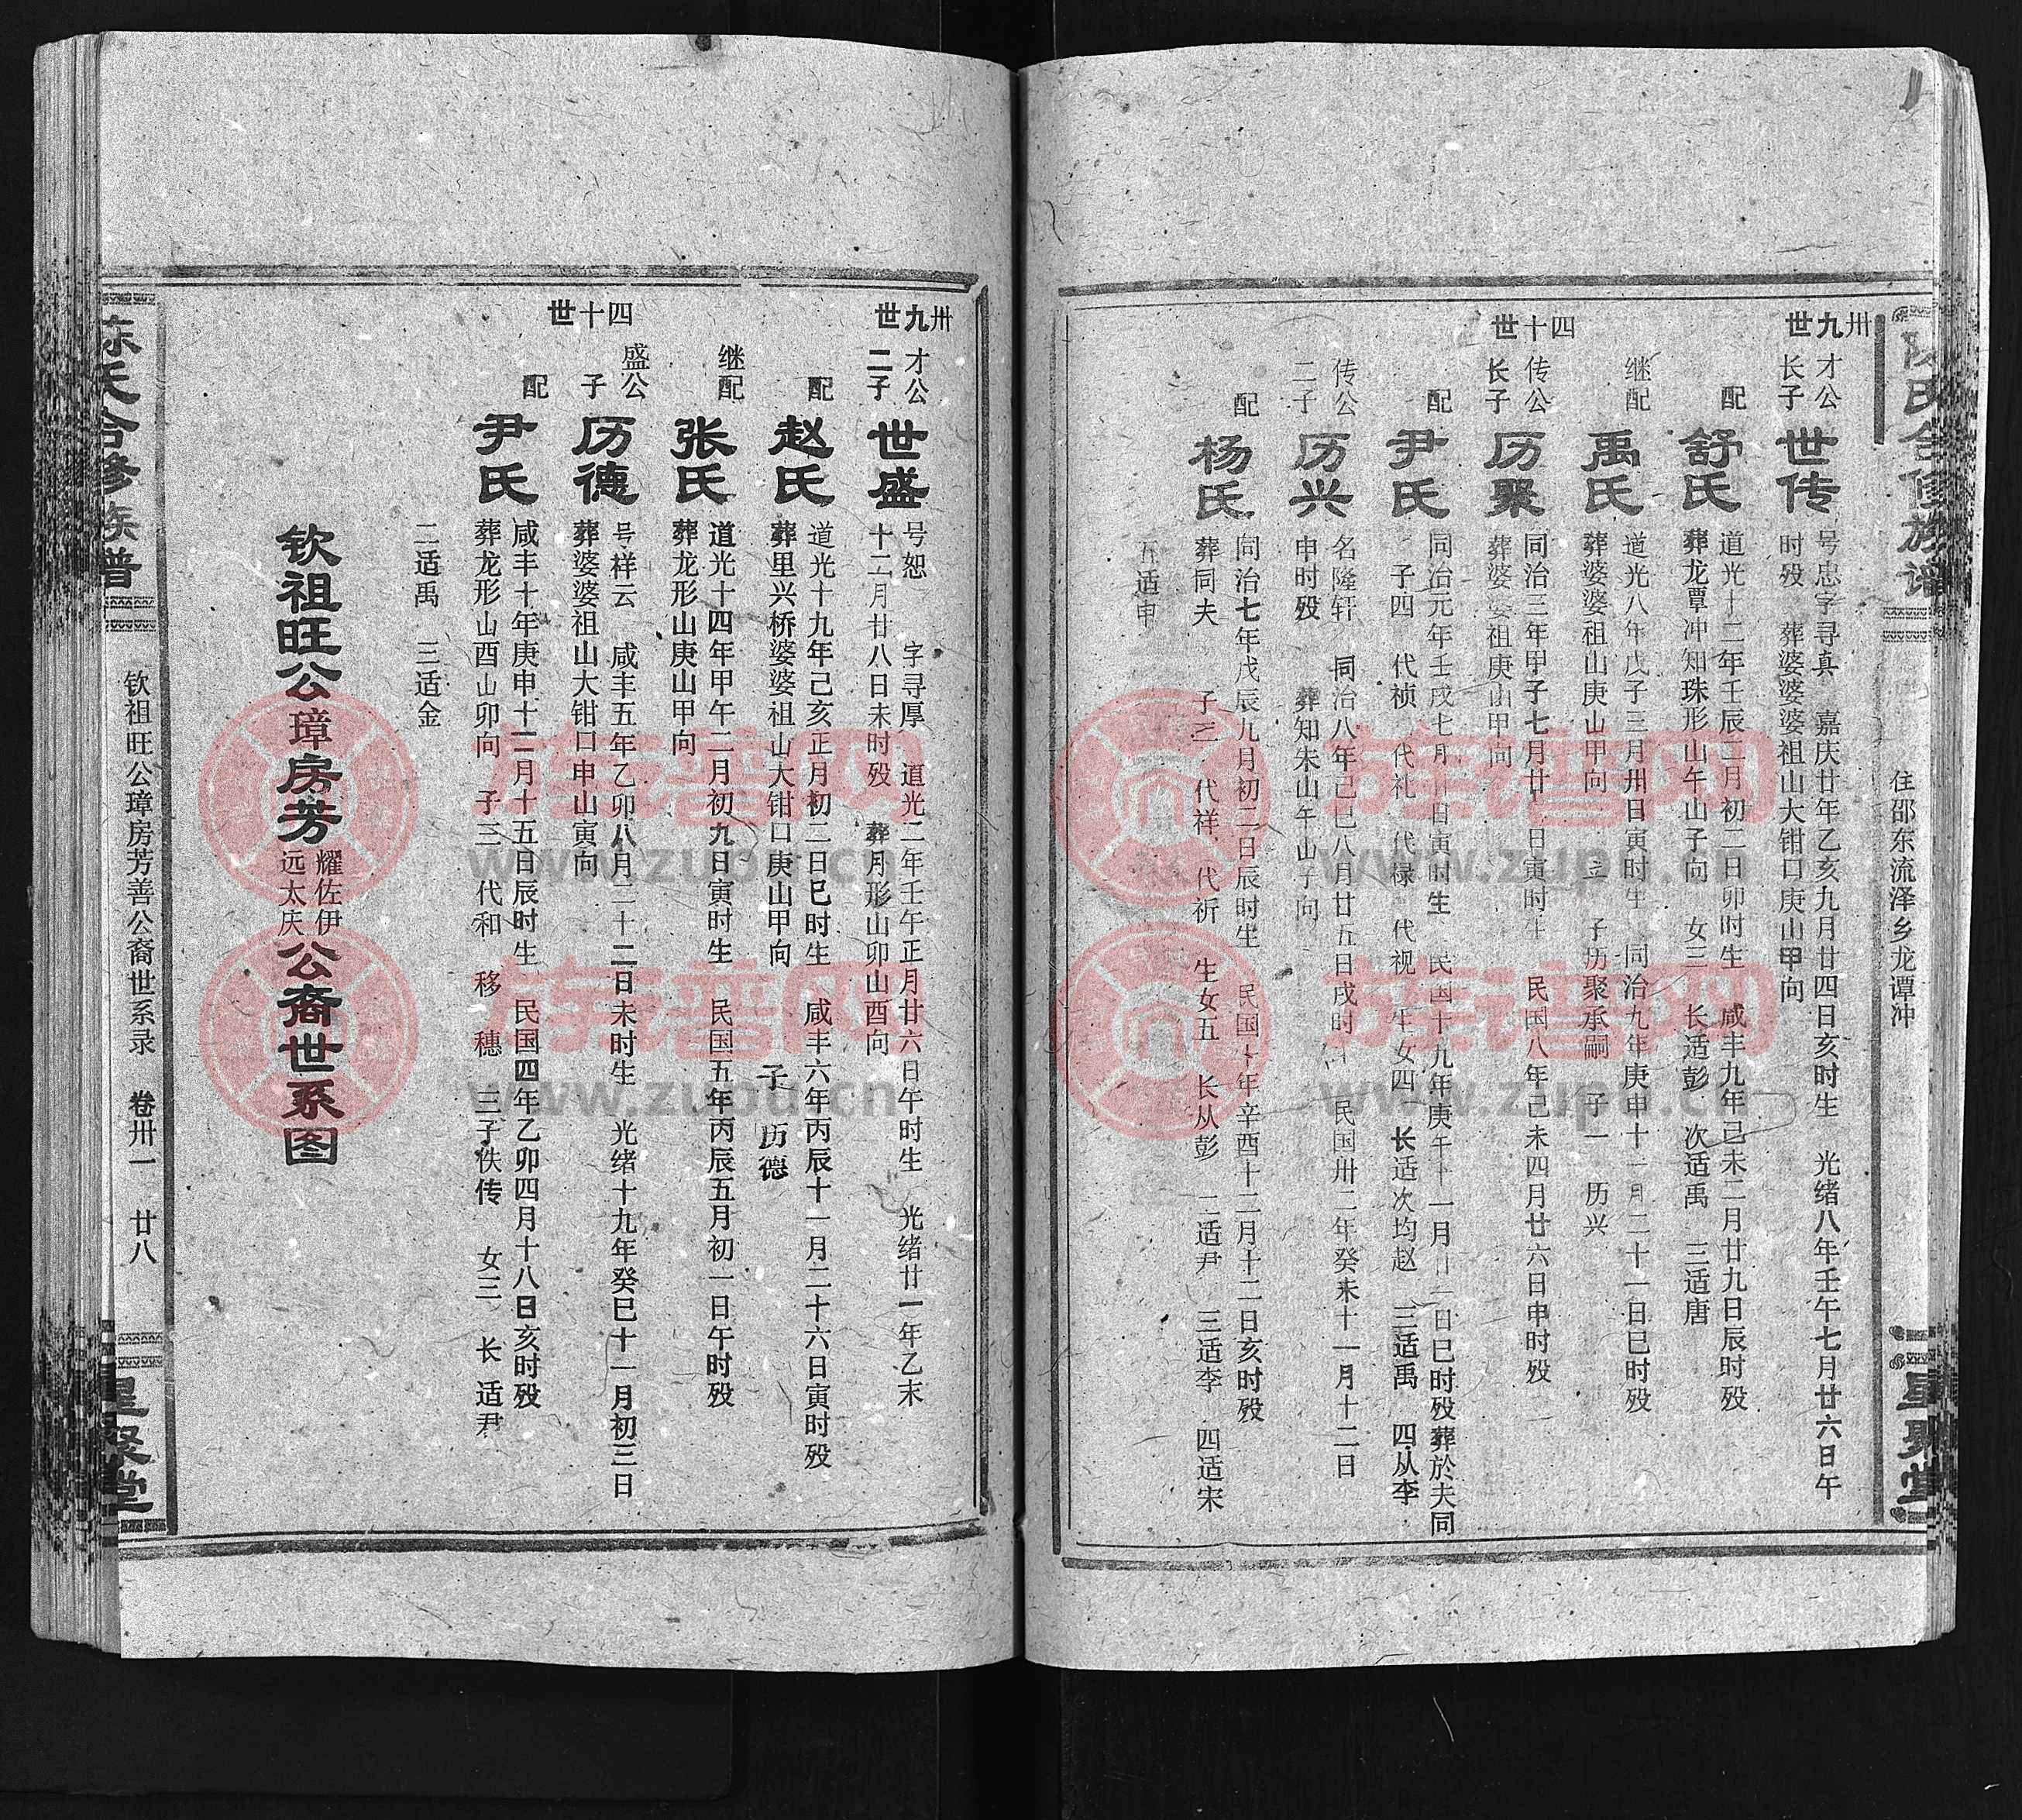 陈氏合修族谱
住邵东流泽乡龙谭冲
星聚堂
卅九世
才公长子
世传
号忠字寻真 嘉庆廿年乙亥九月廿四日亥时生 光绪八年壬午七月廿六日午
时殁 葬婆婆祖山大钳口庚山甲向
配
舒氏
道光十二年壬辰二月初二日卯时生 咸丰九年己未二月廿九日辰时殁
葬龙覃冲知珠形山午山子向 女三 长适彭 次适禹 三适唐
继配
禹氏
道光八年戊子三月卅日寅时生 同治九年庚申十一月二十一日巳时殁
葬婆婆祖山庚山甲向 立 子历聚承嗣 子一 历兴
四十世
传公长子
历聚
同治三年甲子七月廿 日寅时生 民国八年己未四月廿六日申时殁
葬婆婆祖庚山甲向
配
尹氏
同治元年壬戌七月 日寅时生 民国十九年庚午十一月 日巳时殁葬於夫同
子四 代祯 代礼 代禄 代视 生女四 长适次均赵 三适禹 四从李
传公二子
历兴
名隆轩 同治八年己巳八月廿五日戌时 民国卅二年癸未十一月十二日
申时殁 葬知朱山午山子向
配
杨氏
同治七年戊辰九月初二日辰时生 民国十年辛酉十二月十二日亥时殁
葬同夫 子三 代祥 代祈 生女五 长从彭 二适尹 三适李 四适宋
五适申
卅九世
才公二子
世盛
号恕 字寻厚 道光二年壬午正月廿六日午时生 光绪廿一年乙未
十二月廿八日未时殁 葬月形山卯山酉向
配
赵氏
道光十九年己亥正月初二日巳时生 咸丰六年丙辰十一月二十六日寅时殁
葬里兴桥婆婆祖山大钳口庚山甲向 子 历德
继配
张氏
道光十四年甲午二月初九日寅时生 民国五年丙辰五月初一日午时殁
葬龙形山庚山甲向
四十世
盛公子
历德
号祥云 咸丰五年乙卯八月二十二日未时生 光绪十九年癸巳十一月初三日
葬婆婆祖山大钳口申山寅向
配
尹氏
咸丰十年庚申十二月十五日辰时生 民国四年乙卯四月十八日亥时殁
葬龙形山酉山卯向 子三 代和 移 穗 三子佚传 女三 长适尹
二适禹 三适金
钦祖旺公璋房芳耀佐伊远太庆公裔世系图
陈氏合修族谱
钦祖旺公璋房芳善公裔世系录 卷卅一 廿八
星聚堂
族谱网
www.zupu.cn
族谱网
www.zupu.cn
族谱网
www.zupu.cn
族谱网
www.zupu.cn